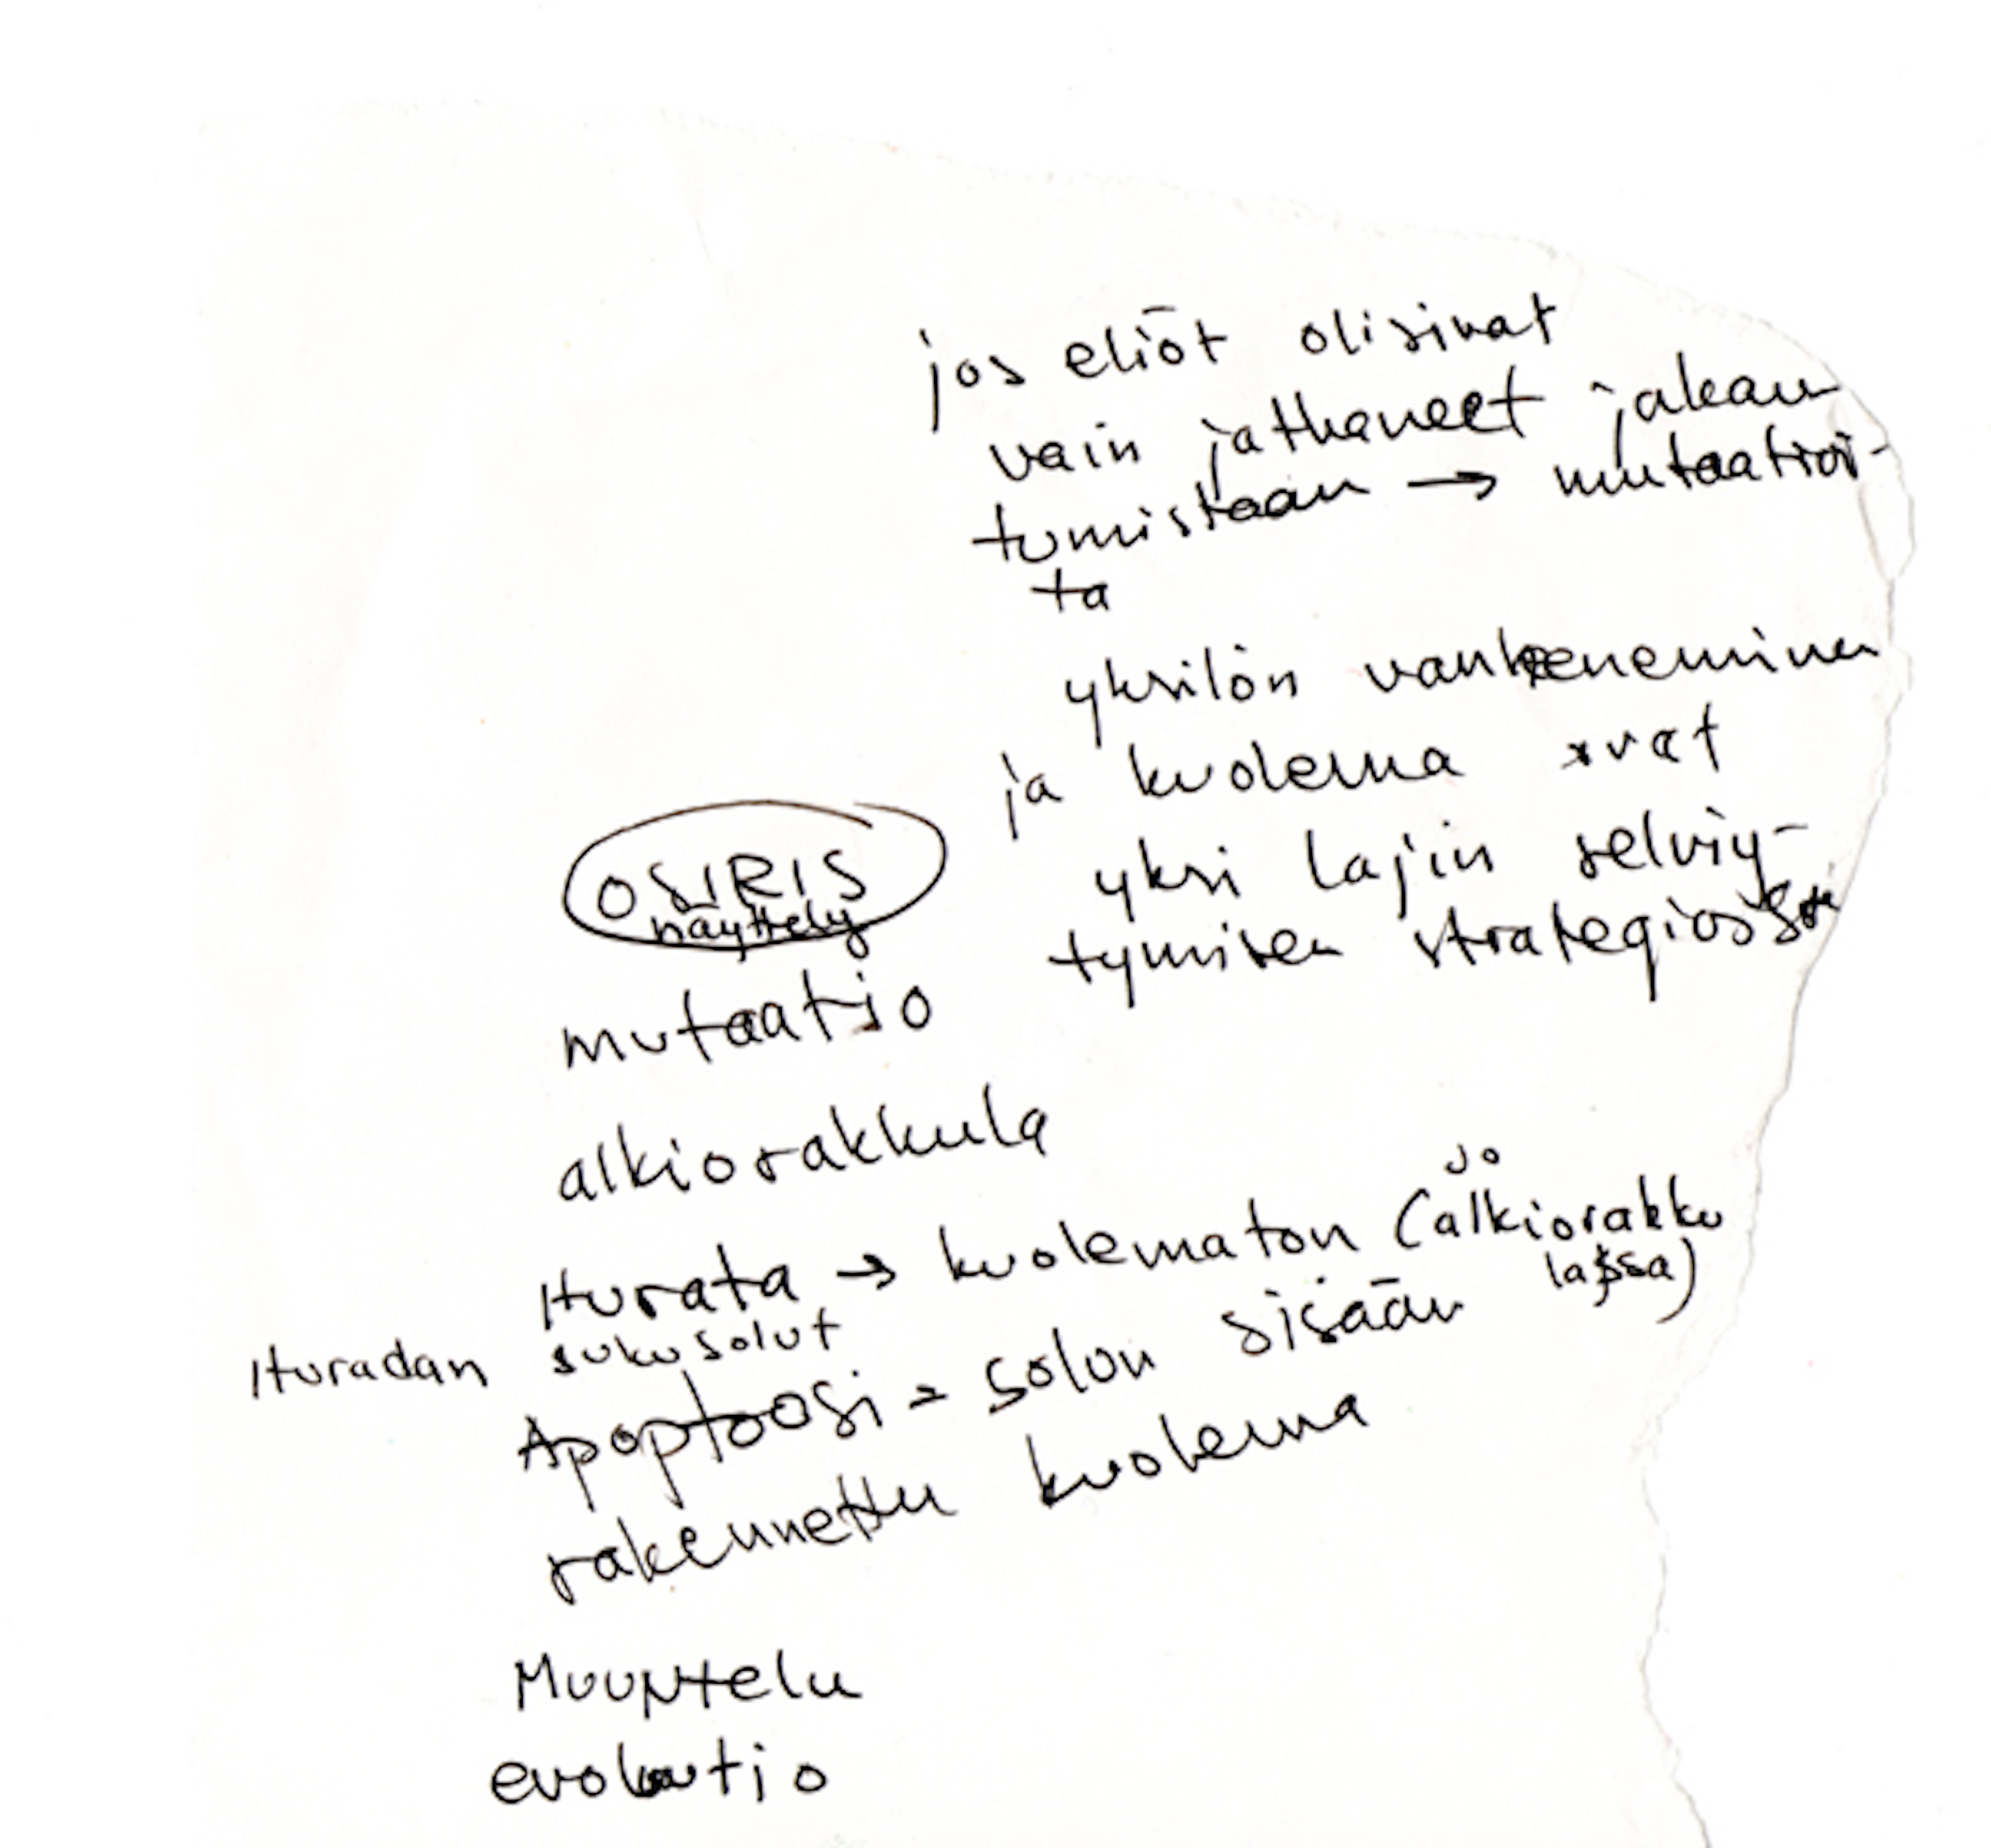 jos eliöt olisivat
vain jatkaneet jakau
tumistaan → mutaatioi-
ta
yksilön vanheneminen
ja kuolema ovat
yksi lajin selviy-
tymisen strategioista
OSIRIS
näyttely
mutaatio
alkiorakkula
Iturata → kuolematon (alkiorakku
jo
lassa)
Ituradan sukusolut
Apoptoosi = solun sisään
rakennettu kuolema
Muuntelu
evoluutio